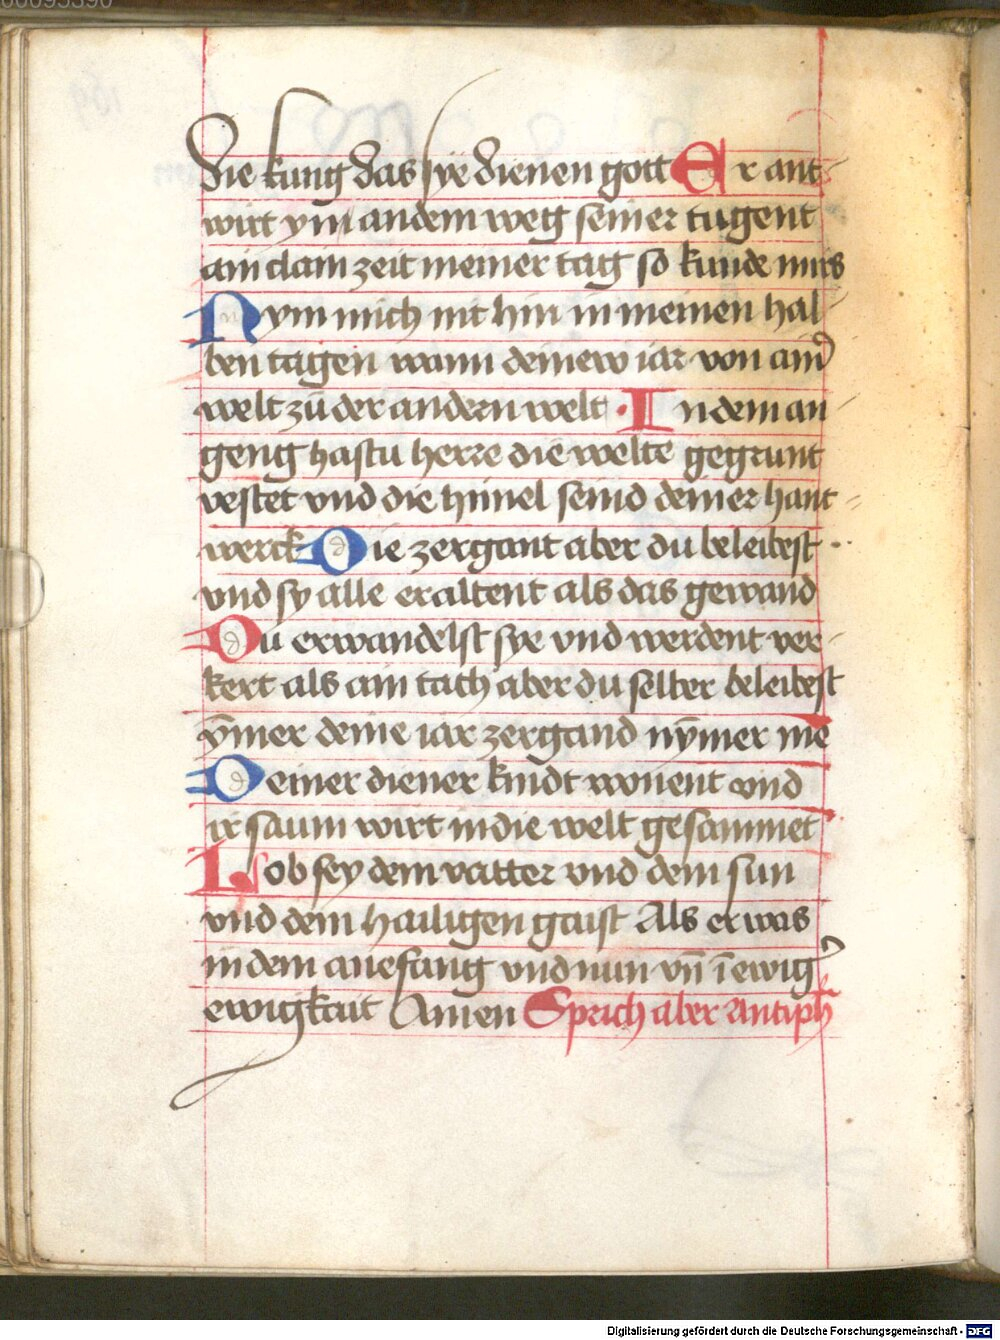 00095390
die kung das sye dienen gott Er ant
wirt ym an dem weg seiner tugent
ain clain zeit meiner tag so kunde mirs
Nym mich nit hin in meinen hal
ben tagen wann deinew iar von ain
welt zů der andern welt · In dem an
geng hastu herre die welte gegrunt
vestet vnd die himel seind deiner hant
werck Die zergant aber du beleibest
vnd sy alle eraltent als das gewand
Du erwandelst sye vnd werdent ver
kert als ain tach aber du selber beleibest
ȳmer deine iar zergand nȳmer me
Deiner diener kindt wonent vnd
ir saum wirt in die welt gesammet
Lob sey dem vatter vnd dem sun
vnd dem hailigen gaist Als er was
in dem anefang vnd nun vn̄ ī ewig
ewigkait Amen Sprich aber Antiph
Digitalisierung gefördert durch die Deutsche Forschungsgemeinschaft - DFG